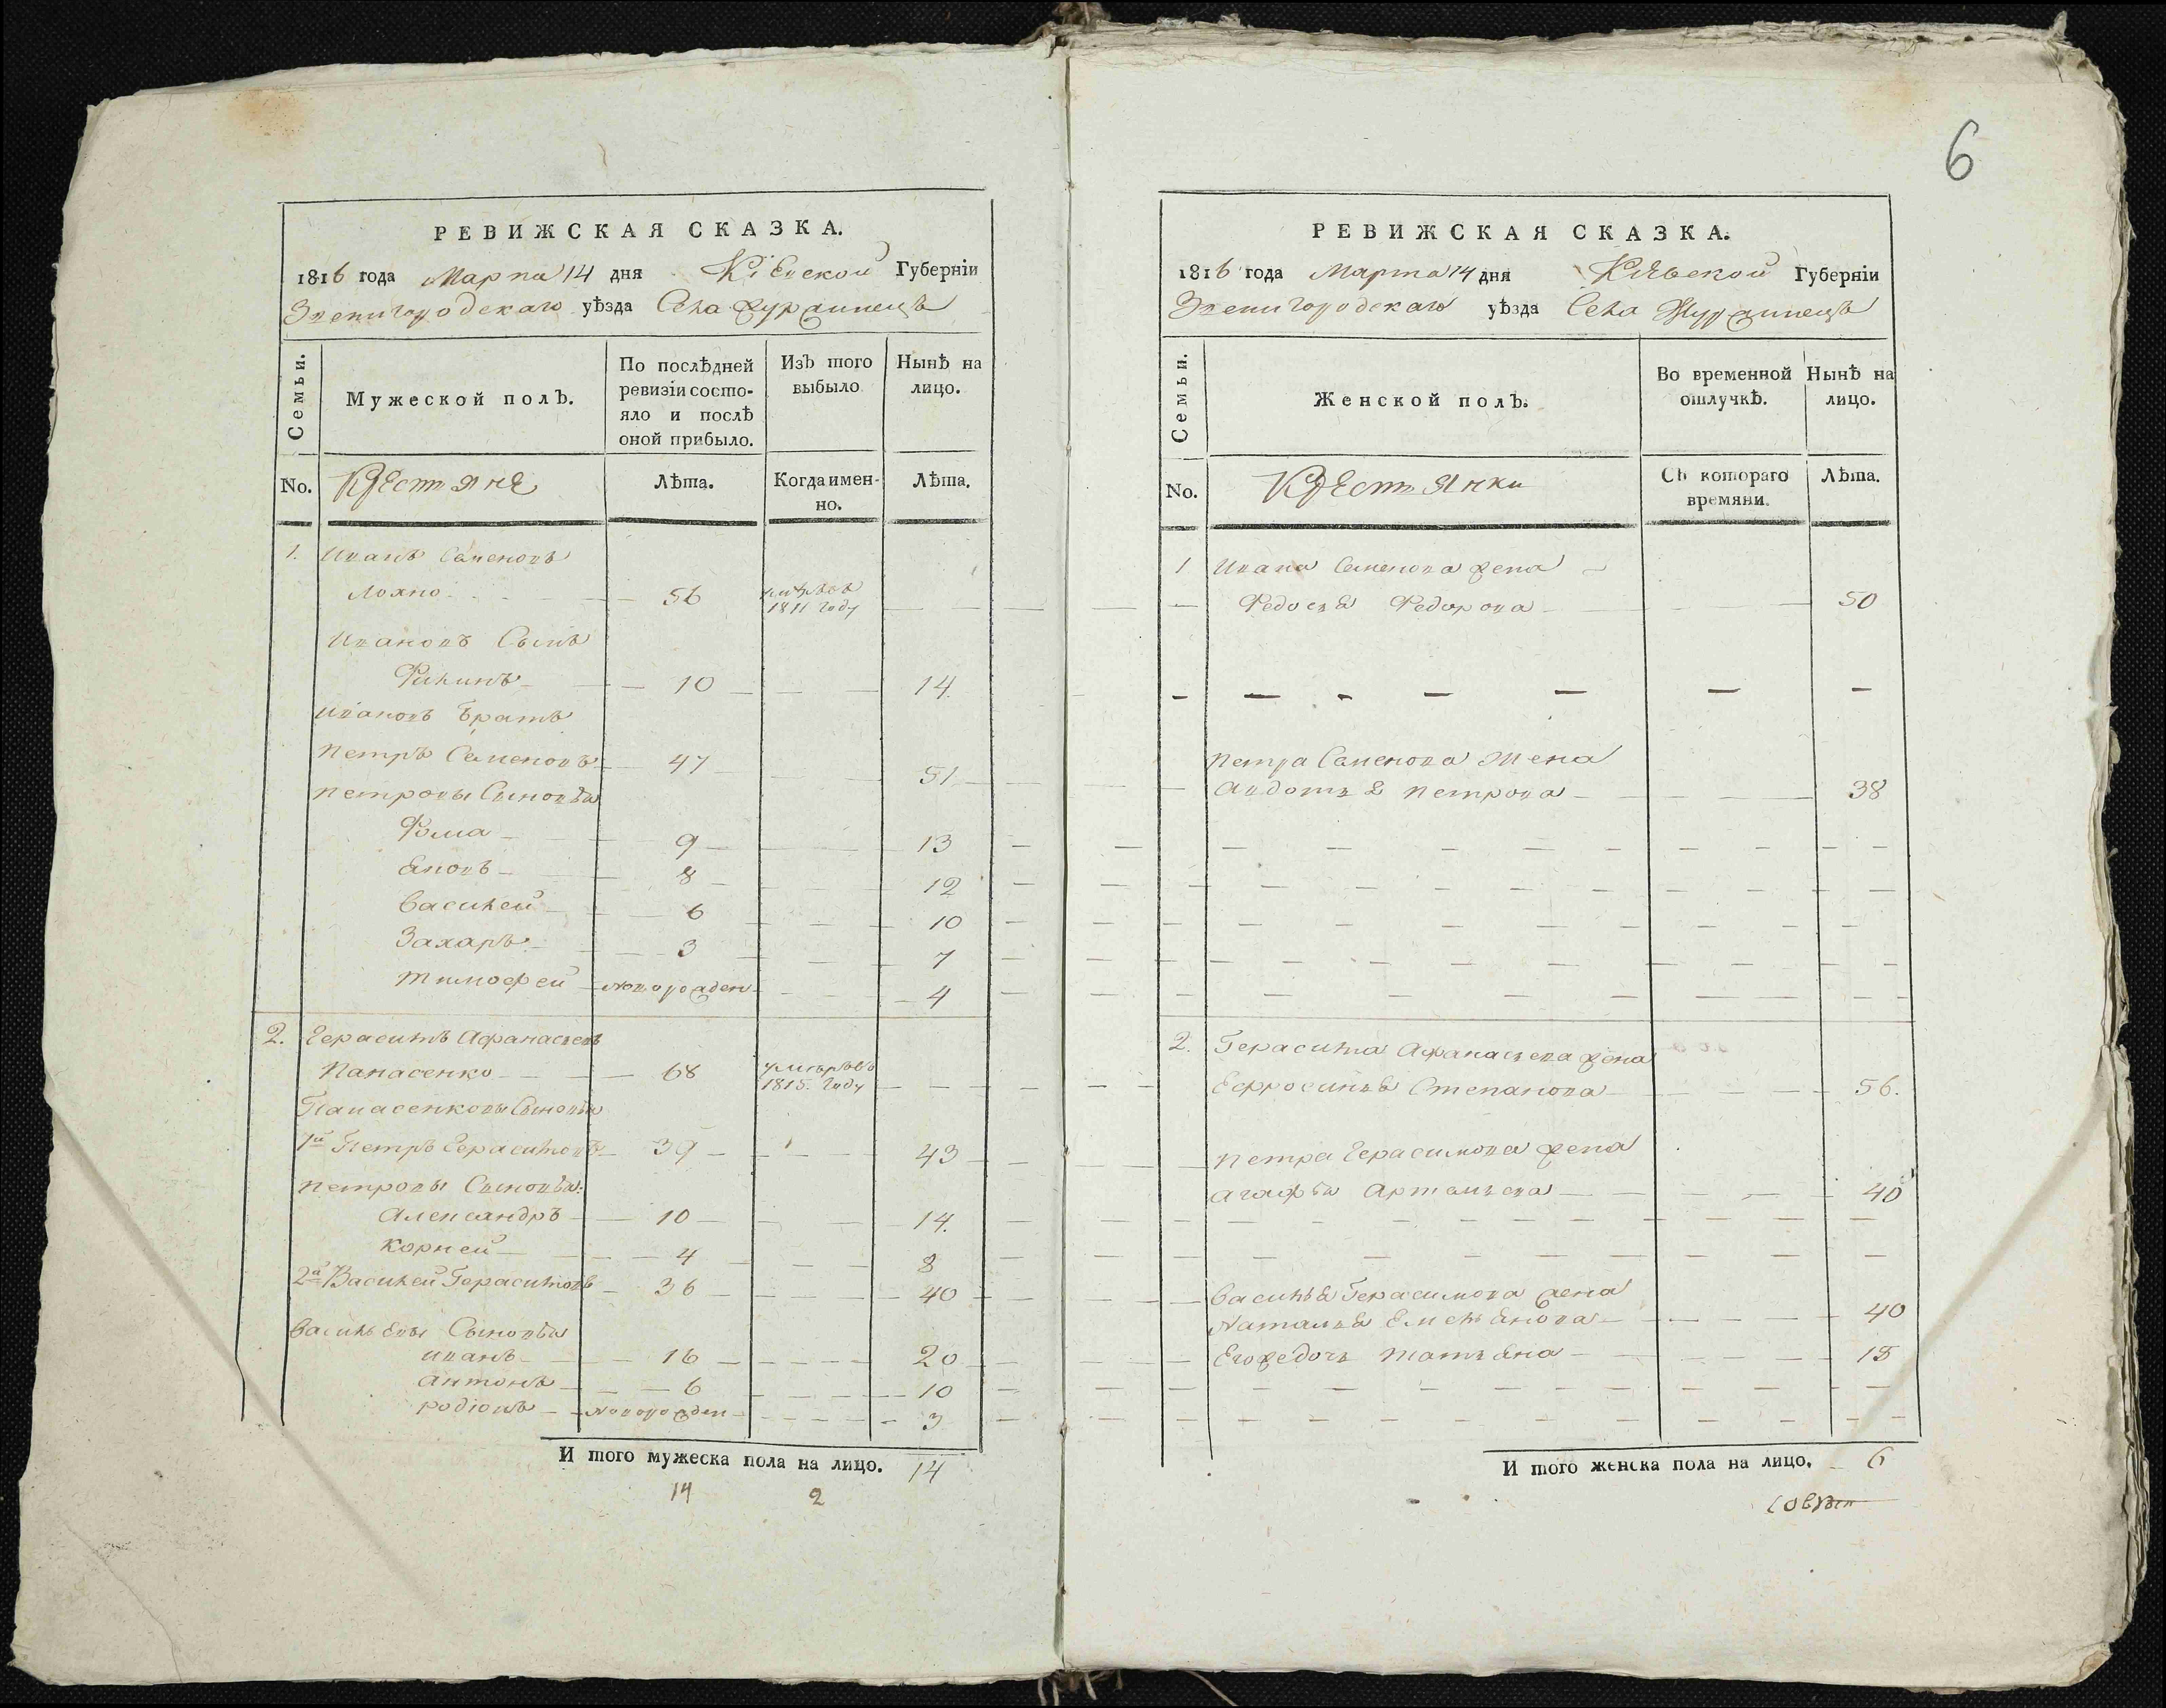 6
РЕВИЖСКАЯ СКАЗКА.
1816 года Марта 14 дня Кіевской Губерніи
Звенигородскаго уѣзда Села Журжинецъ
Семьи.
Мужеской полъ.
По послѣдней ревизіи состо-
яло и послѣ
оной прибыло.
Изъ того
выбыло
Нынѣ на
лицо.
No. Крестяне Лѣта. Когда имен-
но. Лѣта.
1. Иванъ Семеновъ
Лохно 56 умѣръ въ
1811 году
Ивановъ Сынъ
Филипъ 10 14
Ивановъ Братъ
Петръ Семеновъ 47 51
Петровы Сыновья
Фома 9 13
8 12
Василей 6 10
Захаръ 3 7
Тимофей Новорожден 4
2. Герасимъ Афанасьевъ
Панасенко 68 умѣръ въ
1815 году
Панасенковы Сыновья
1й Петръ Герасимовъ 39 43
Петровы Сыновья:
Александръ 10 14.
Корней 4 8
2й Василей Герасимовъ 36 40
Васильевы Сыновья
Иванъ 16 20
Антонъ 6 10
Родіонъ Новорожден 3
И того мужеска пола на лицо. 14
14 2
РЕВИЖСКАЯ СКАЗКА.
1816 года Марта 14 дня Кіевской Губерніи
Звенигородскаго уѣзда Села Журжинецъ
Семьи.
Женской полъ.
Во временной
отлучкѣ.
Нынѣ на
лицо.
No. Крестянки Съ котораго
времяни. Лѣта.
1 Ивана Семенова жена
Федосья Федорова 50
Петра Семенова жена
Авдотья Петрова 38
2. Герасима Афанасьева жена
Ефросинья Степанова 56.
Петра Герасимова жена
Агафья Артемьева 40
Василья Герасимова жена
Наталья Емельянова 40
Его жедочь Татьяна 18
И того женска пола на лицо. 6